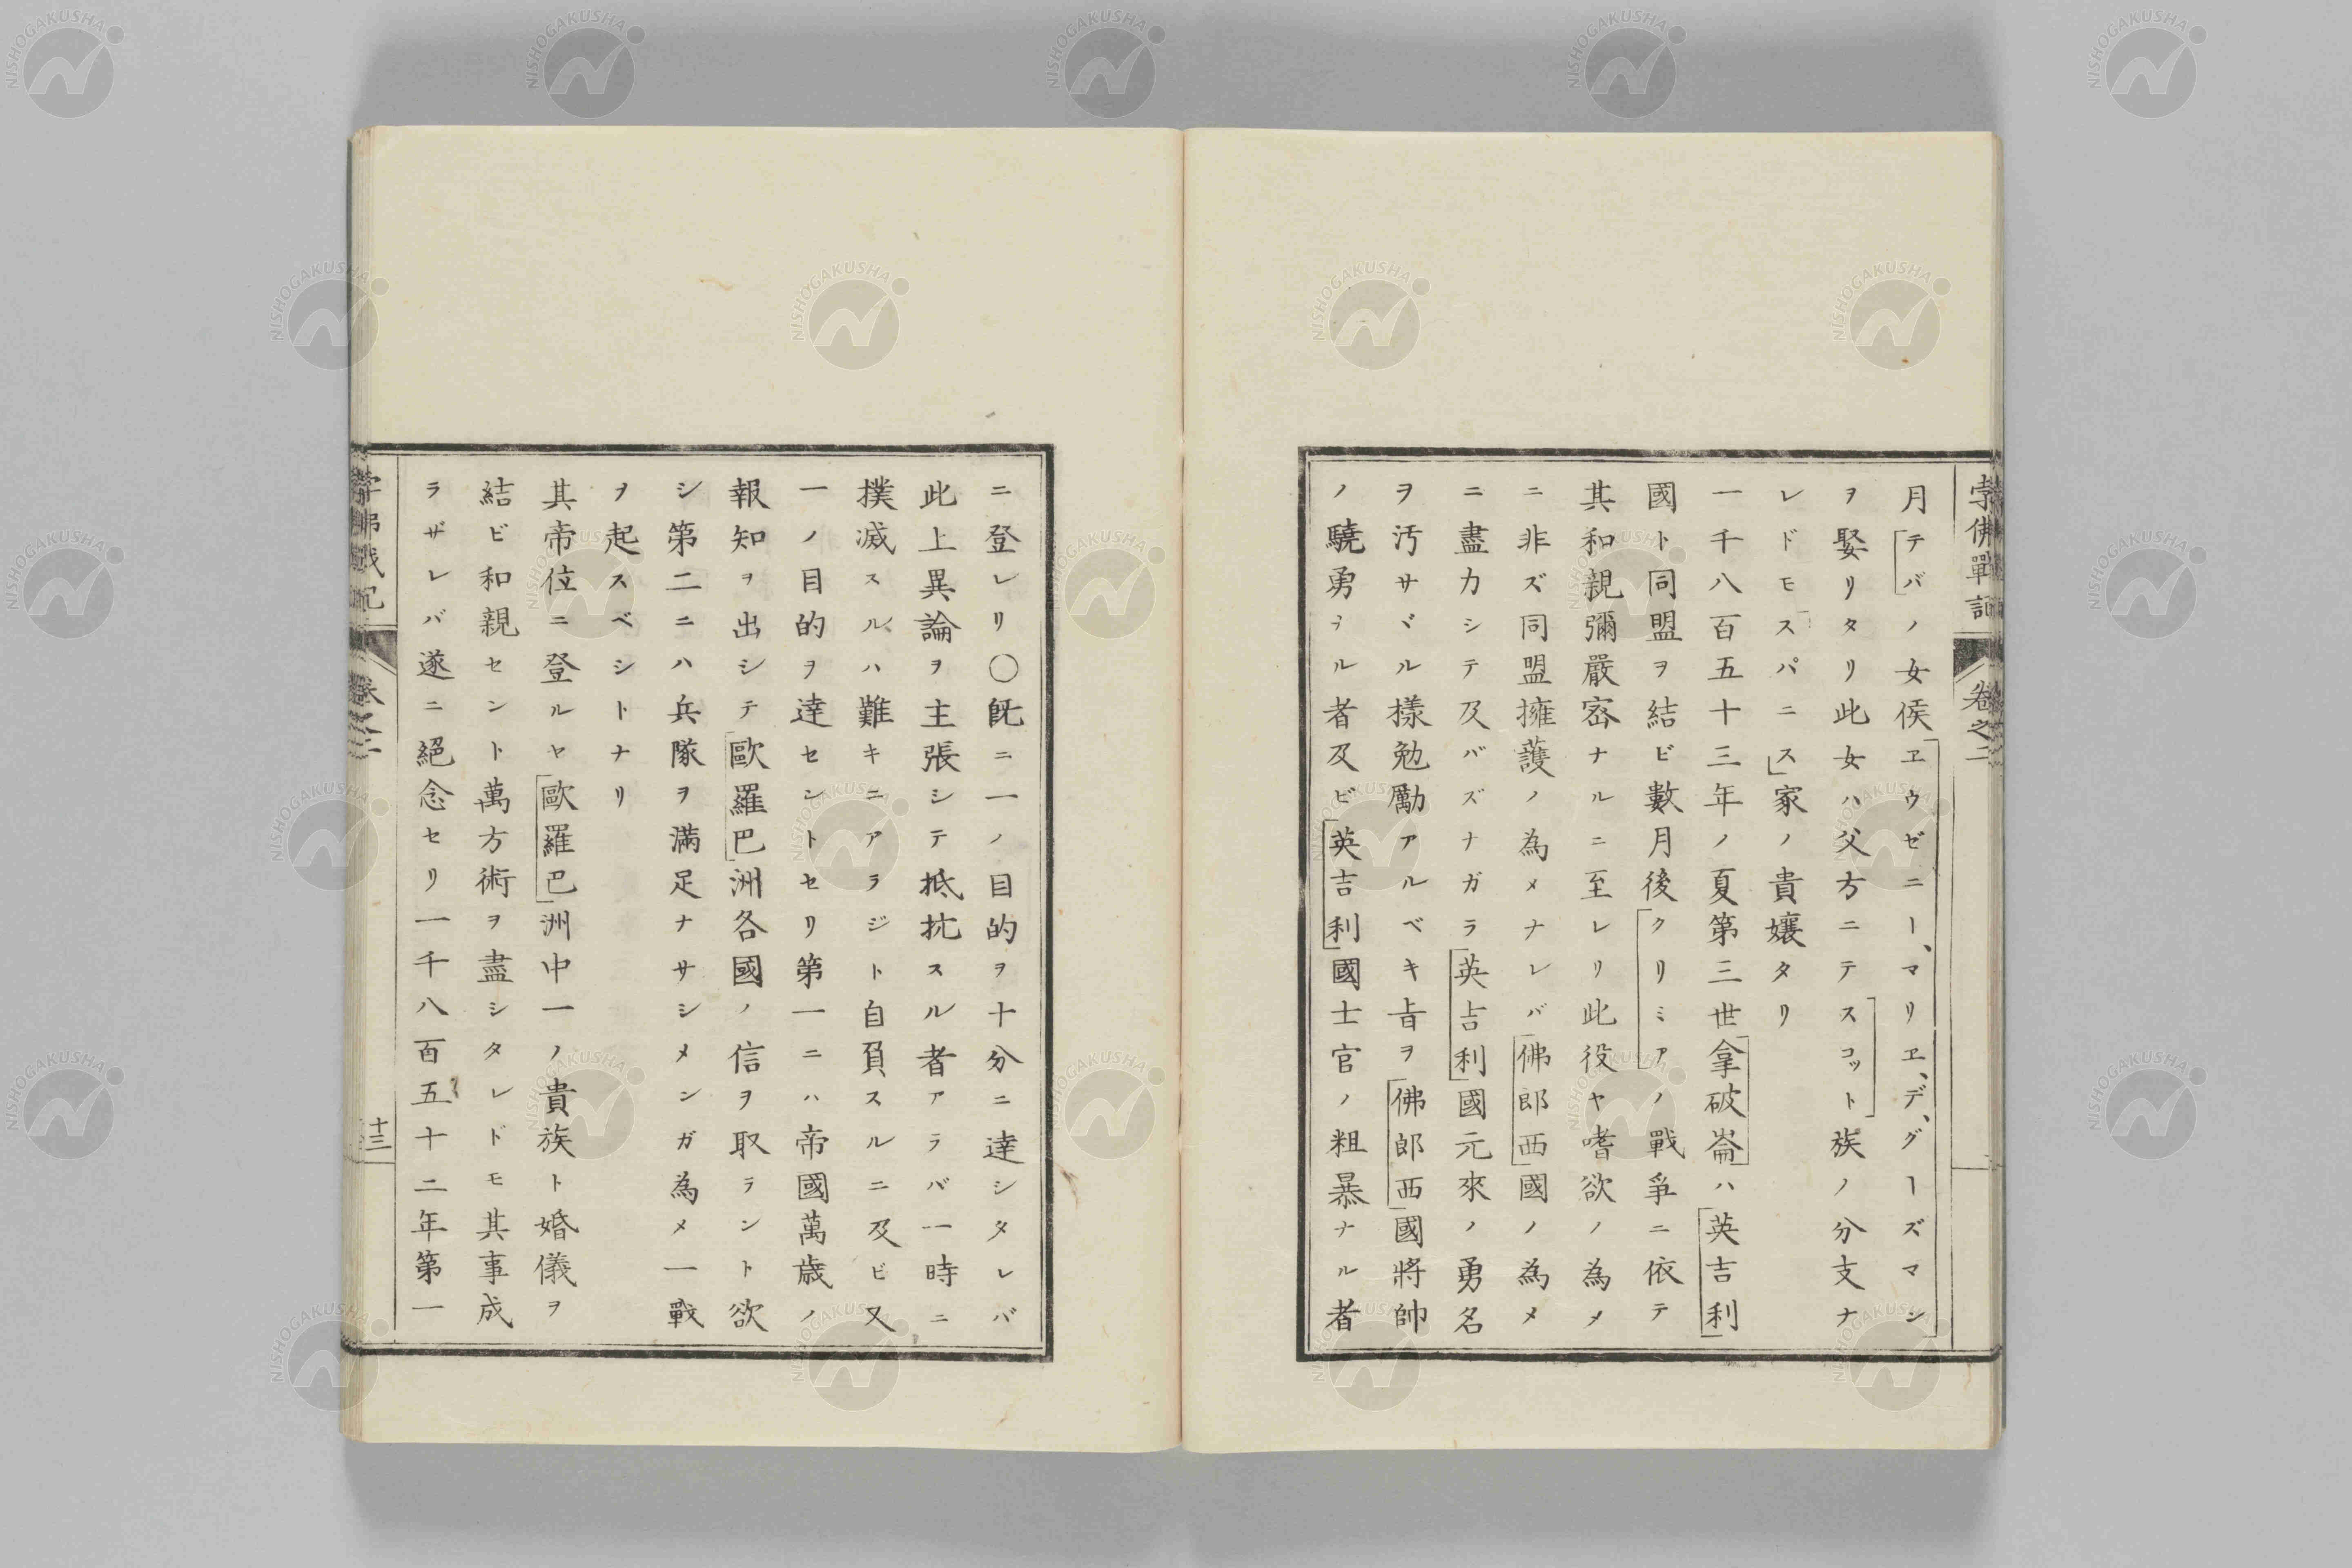 孛佛戰記 卷之二
月テバノ女侯ヱウゼニー、マリヱ、デ、グーズマン
ヲ娶リタリ此女ハ父方ニテスコット族ノ分支ナ
レドモスパニス家ノ貴孃タリ
一千八百五十三年ノ夏第三世拿破崙ハ英吉利
國ト同盟ヲ結ビ數月後クリミアノ戰爭ニ依テ
其和親彌嚴密ナルニ至レリ此役ヤ嗜欲ノ為メ
ニ非ズ同盟擁護ノ為メナレバ佛郎西國ノ為メ
ニ盡力シテ及バズナガラ英吉利國元來ノ勇名
ヲ汚サヾル樣勉勵アルベキ旨ヲ佛郎西國將帥
ノ驍勇ヲル者及ビ英吉利國士官ノ粗暴ナル者
ニ登レリ〇既ニ一ノ目的ヲ十分ニ達シタレバ
此上異論ヲ主張シテ抵抗スル者アラバ一時ニ
撲滅スルハ難キニアラジト自負スルニ及ビ又
一ノ目的ヲ達セントセリ第一ニハ帝國萬歲ノ
報知ヲ出シテ歐羅巴洲各國ノ信ヲ取ラント欲
シ第二ニハ兵隊ヲ滿足ナサシメンガ為メ一戰
ヲ起スベシトナリ
其帝位ニ登ルヤ歐羅巴洲中一ノ貴族ト婚儀ヲ
結ビ和親セント萬方術ヲ盡シタレドモ其事成
ラザレバ遂ニ絕念セリ一千八百五十二年第一
孛佛戰記 卷之二 十三
NISHOGAKUSHA